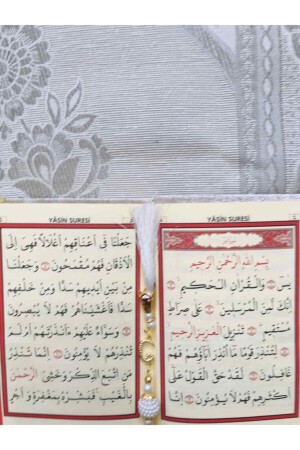 YÂSİN SURESİ
بِسْمِ اللهِ الرَّحْمٰنِ الرَّحِيمِ
يٰسٓ وَالْقُرْاٰنِ الْحَكِيمِ
اِنَّكَ لَمِنَ الْمُرْسَلِينَ عَلٰى صِرَاطٍ
مُسْتَقِيمٍ تَنْزِيلَ الْعَزِيزِ الرَّحِيمِ
لِتُنْذِرَ قَوْمًا مَٓا اُنْذِرَ اٰبَٓاؤُهُمْ فَهُمْ
غَافِلُونَ لَقَدْ حَقَّ الْقَوْلُ عَلٰٓى
اَكْثَرِهِمْ فَهُمْ لَا يُؤْمِنُونَ اِنَّا
YÂSİN SURESİ
جَعَلْنَا فِٓى اَعْنَاقِهِمْ اَغْلَالًا فَهِىَ اِلَى
الْاَذْقَانِ فَهُمْ مُقْمَحُونَ وَجَعَلْنَا
مِنْ بَيْنِ اَيْدِيهِمْ سَدًّا وَمِنْ خَلْفِهِمْ
سَدًّا فَاَغْشَيْنَاهُمْ فَهُمْ لَا يُبْصِرُونَ
وَسَوَٓاءٌ عَلَيْهِمْ ءَاَنْذَرْتَهُمْ اَمْ لَمْ
تُنْذِرْهُمْ لَا يُؤْمِنُونَ اِنَّمَا تُنْذِرُ
مَنِ اتَّبَعَ الذِّكْرَ وَخَشِىَ الرَّحْمٰنَ
بِالْغَيْبِ فَبَشِّرْهُ بِمَغْفِرَةٍ وَاَجْرٍ